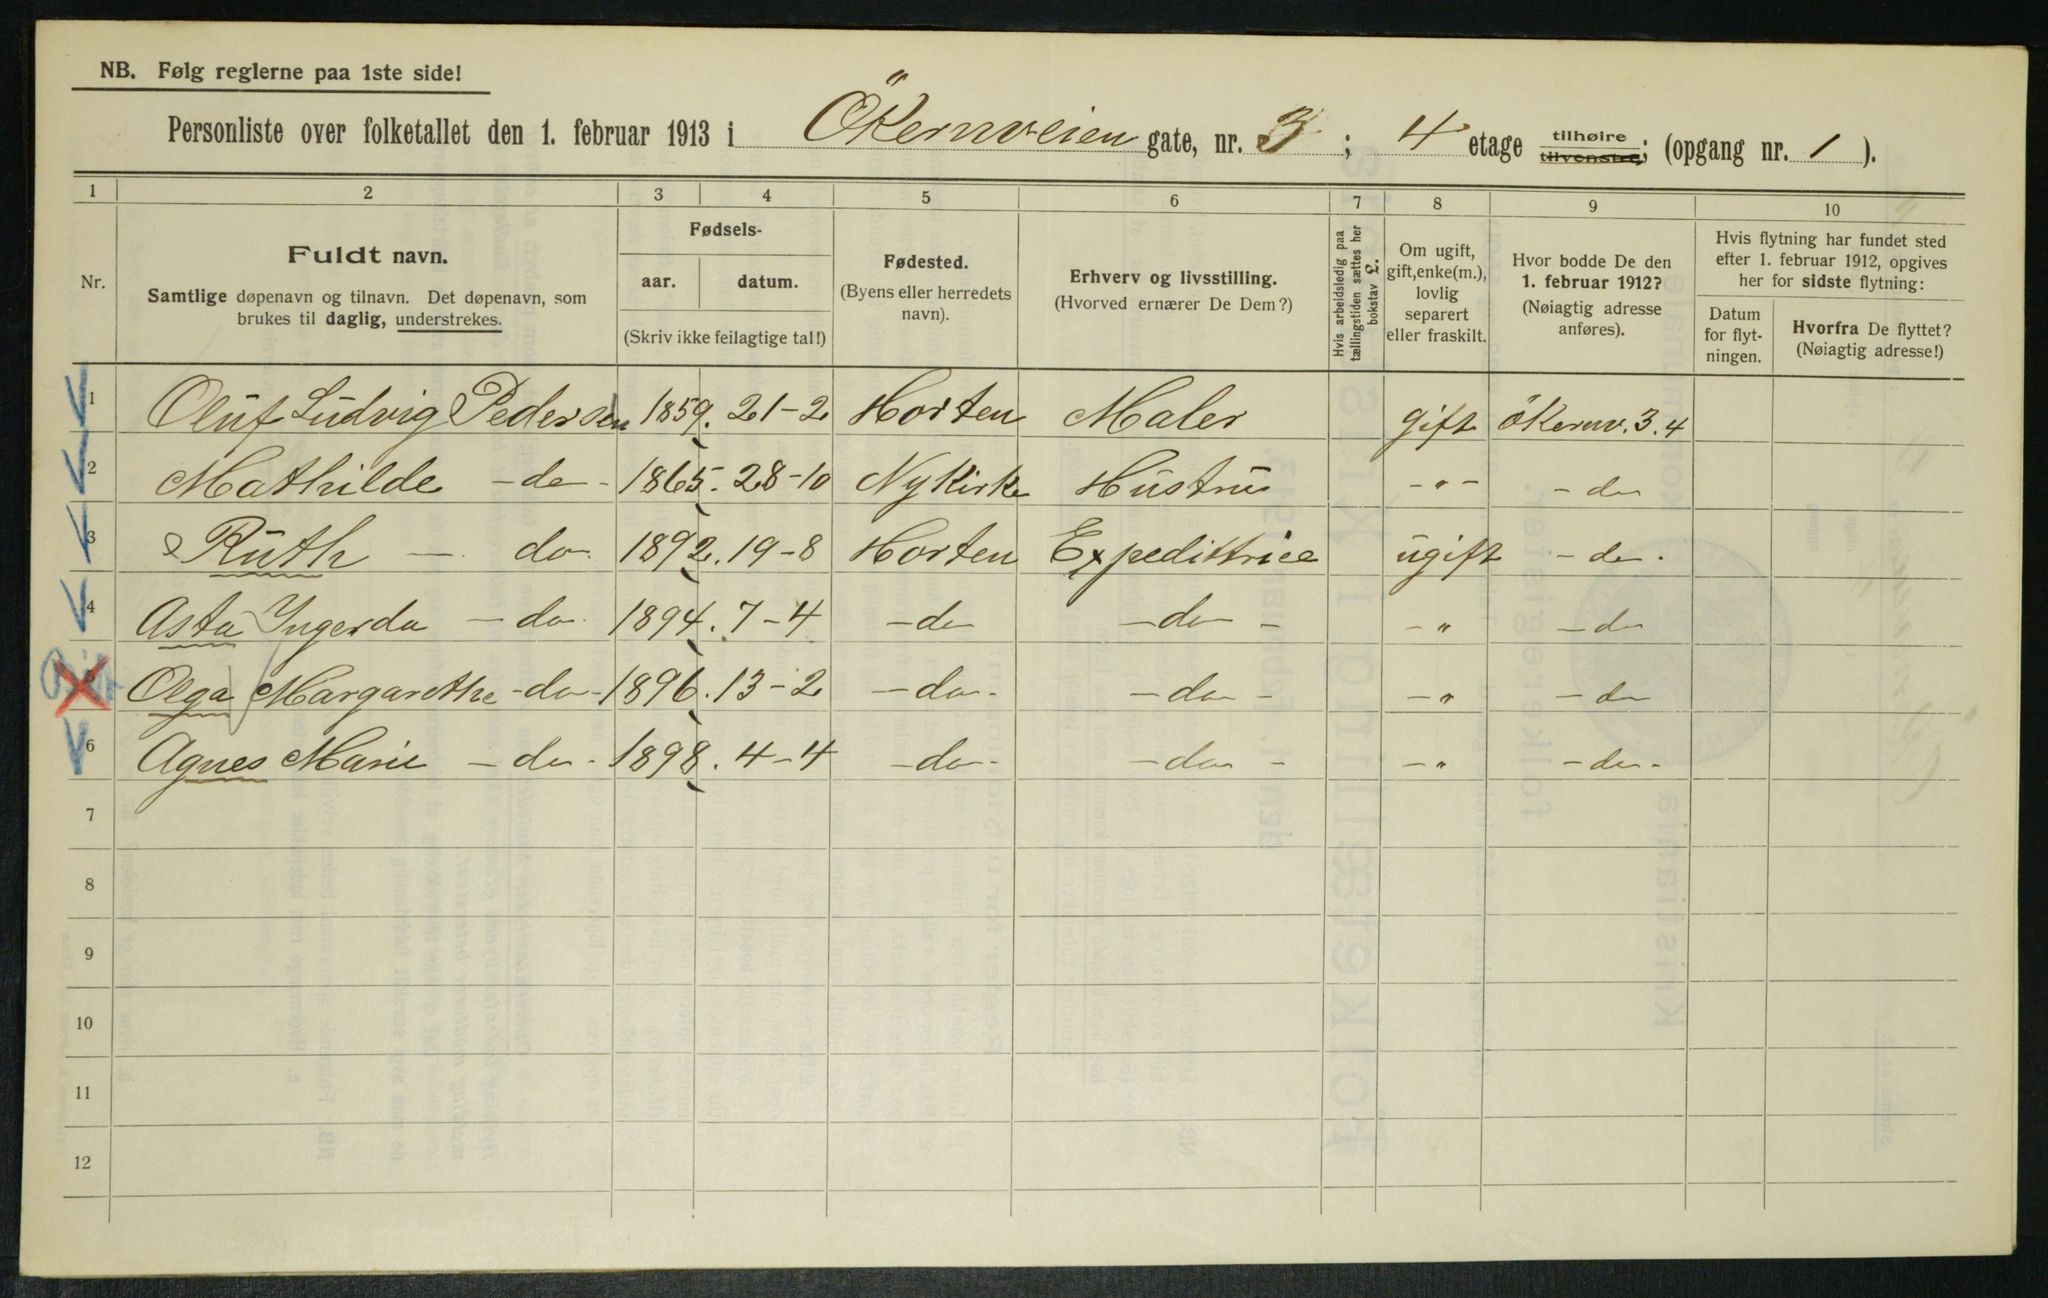 NB. Følg reglerne paa 1ste side!
Personliste over folketallet den 1. februar 1913 i Ökernveien gate, nr. 3; 4 etage tilhøire tilvenstre; (opgang nr. 1).
1 2 3 4 5 6 7 8 9 10
Nr.
Fuldt navn.
Samtlige døpenavn og tilnavn. Det døpenavn, som
brukes til daglig, understrekes.
Fødsels-
aar. datum.
(Skriv ikke feilagtige tal!)
Fødested.
(Byens eller herredets
navn).
Erhverv og livsstilling.
(Hvorved ernærer De Dem?)
Hvis arbeidsledig paa
tællingstiden sættes her
bokstav L.
Om ugift,
gift, enke(m.),
lovlig
separert
eller fraskilt.
Hvor bodde De den
1. februar 1912?
(Nøiagtig adresse
anføres).
Hvis flytning har fundet sted
efter 1. februar 1912, opgives
her for sidste flytning:
Datum
for flyt-
ningen.
Hvorfra De flyttet?
(Nøiagtig adresse!)
1 Oluf Ludvig Pedersen 1859. 21-2 Horten Maler gift Ökernv. 3.4
2 Mathilde -do- 1865. 28-10 Nykirke Hustru -"- -do
3 Ruth - do 1892. 19-8 Horten Expeditrice ugift -do-
4 Asta Ingerda -do 1894. 7-4 -do -do- -" -do
5 Olga Margarethe -do- 1896. 13-2 -do- -do- -" -do
6 Agnes Marie -do- 1898. 4-4 -do- -do- -" -do-
7
8
9
10
11
12